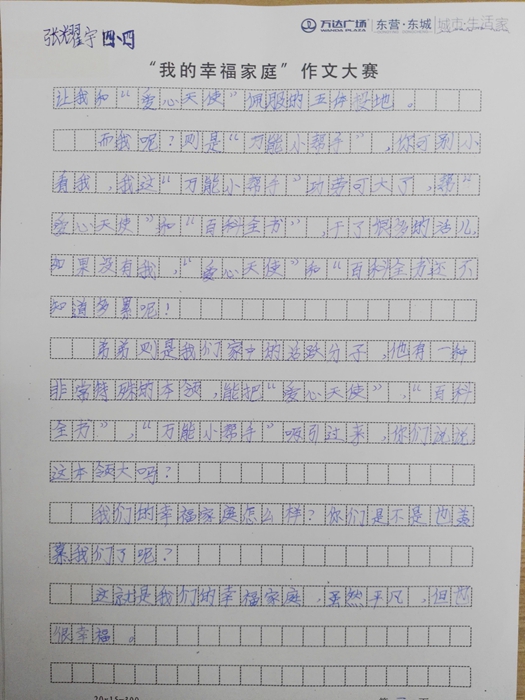 万达广场 WANDA PLAZA 东营·东城 城市·生活家
张耀宇 四、四
“我的幸福家庭”作文大赛
让我和“爱心天使”佩服的五体投地。
而我呢？则是“万能小帮手”，你可别小
看我，我这“万能小帮手”功劳可大了，帮“
爱心天使”和“百科全书”，干了很多的活儿，
如果没有我，“爱心天使”和“百科全书还不
知道多累呢！
弟弟则是我们家中的活跃分子，他有一种
非常特殊的本领，能把“爱心天使”，“百科
全书”，“万能小帮手”吸引过来，你们说说
这本领大吗？
我们的幸福家庭怎么样？你们是不是也羡
慕我们了呢？
这就是我们的幸福家庭，虽然平凡，但也
很幸福。
20×15=300